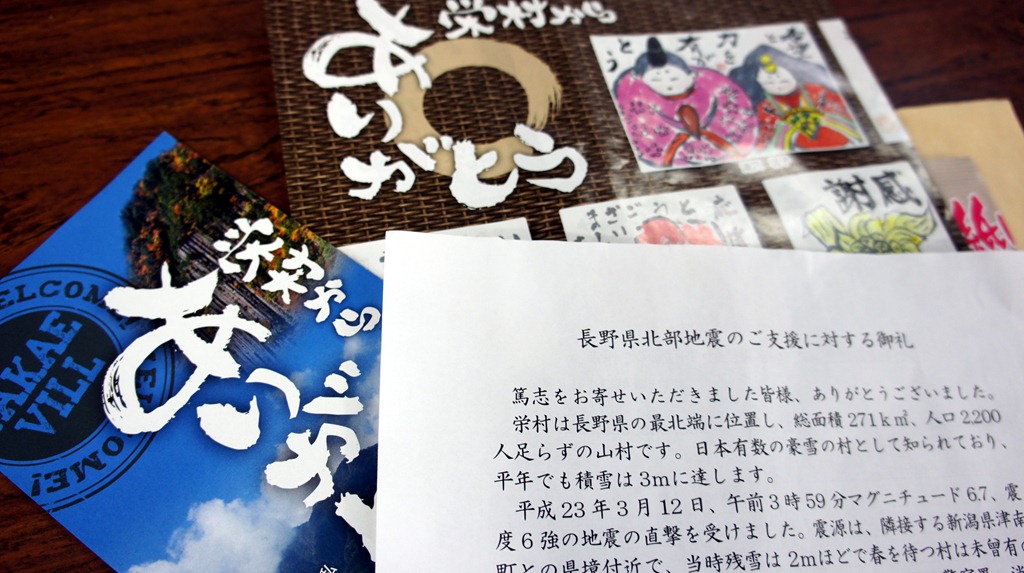 栄村から
ありがとう
力を
有
とう
感
謝
栄村から
あり
WELCOME!
SAKAE
VILL
長野県北部地震のご支援に対する御礼
篤志をお寄せいただきました皆様、ありがとうございました。
栄村は長野県の最北端に位置し、総面積271k㎡、人口2,200
人足らずの山村です。日本有数の豪雪の村として知られており、
平年でも積雪は3mに達します。
平成23年3月12日、午前3時59分マグニチュード6.7、震
度6強の地震の直撃を受けました。震源は、隣接する新潟県津南
町との県境付近で、当時残雪は2mほどで春を待つ村は未曾有の